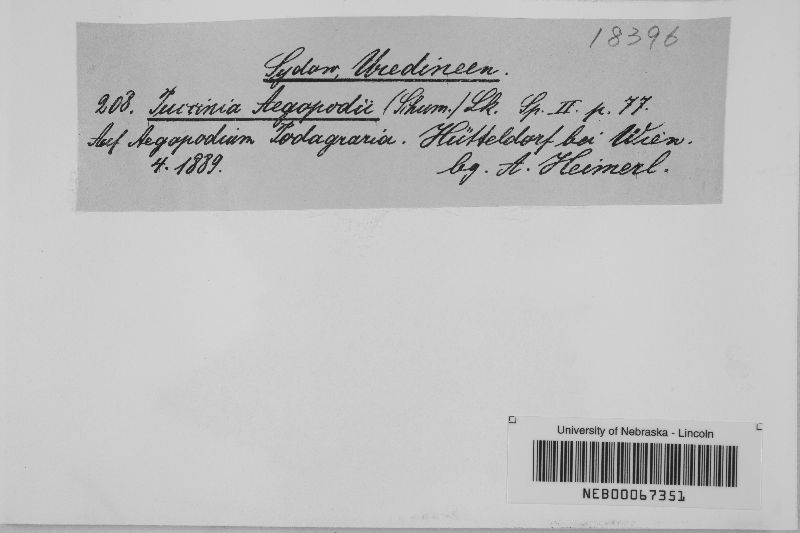 18396
Sydow, Uredineen.
208. Puccinia Aegopodii (Schum.) Lk. Sp. II. p. 77.
Auf Aegopodium Podagraria. Hütteldorf bei Wien.
4. 1889. lg. A. Heimerl.
University of Nebraska - Lincoln
NEB00067351